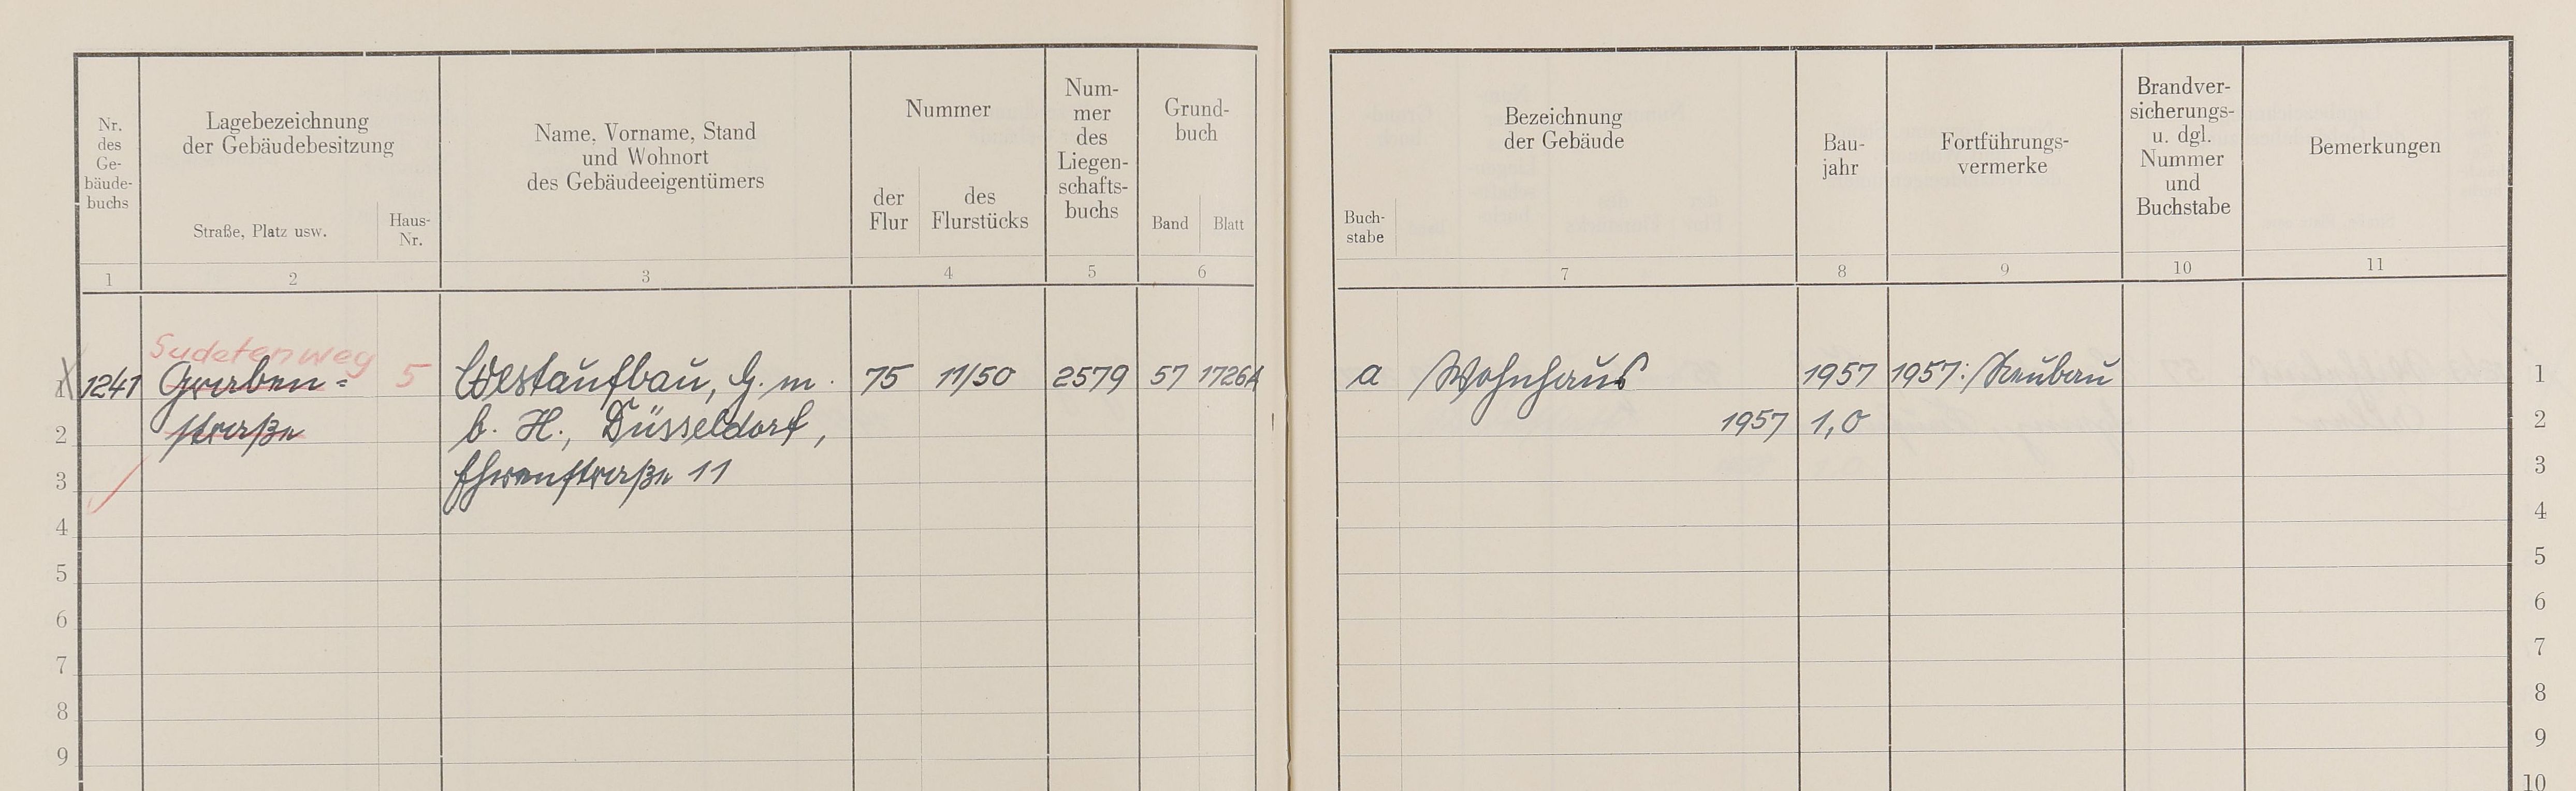 Nr.
des
Ge-
bäude-
buchs
Lagebezeichnung
der Gebäudebesitzung
Straße, Platz usw.
Haus-
Nr.
Name, Vorname, Stand
und Wohnort
des Gebäudeeigentümers
Nummer
der
Flur
des
Flurstücks
Num-
mer
des
Liegen-
schafts-
buchs
Grund-
buch
Band
Blatt
Buch-
stabe
Bezeichnung
der Gebäude
Bau-
jahr
Fortführungs-
vermerke
Brandver-
sicherungs-
u. dgl.
Nummer
und
Buchstabe
Bemerkungen
1 2 3 4 5 6 7 8 9 10 11
Sudetenweg
1 1241 Graben= 5 Westaufbau, G. m. 75 11/50 2579 57 1726A a Wohnhaus 1957 1957: Neubau 1
2 straße b. H., Düsseldorf, 1957 1,0 2
3 Ehrenstraße 11 3
4 4
5 5
6 6
7 7
8 8
9 9
10